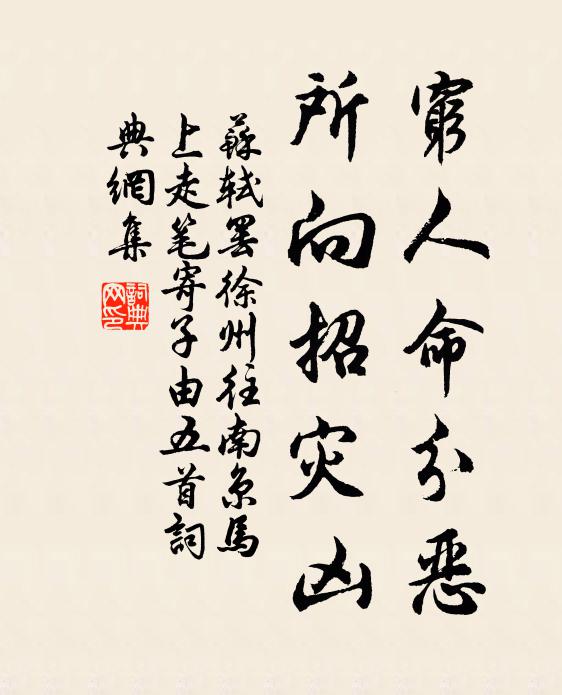 窮人命分惡
所向招灾凶
蘇軾罷徐州往南京馬
上走笔寄子由五首詞
典網集
詞典網印